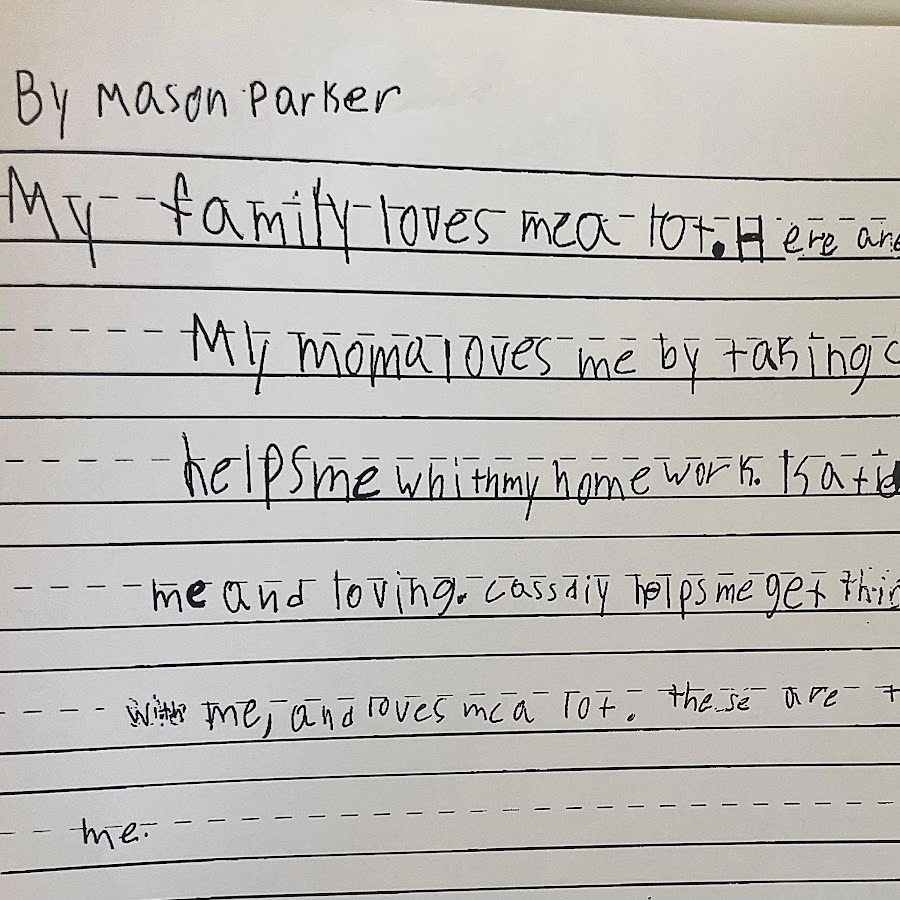 By Mason Parker
My family loves me a lot. Here are
My moma loves me by taking c
helps me whith my home work.
me and loving. cassdiy helps me get thin
with me, and loves me a lot. these are t
me.